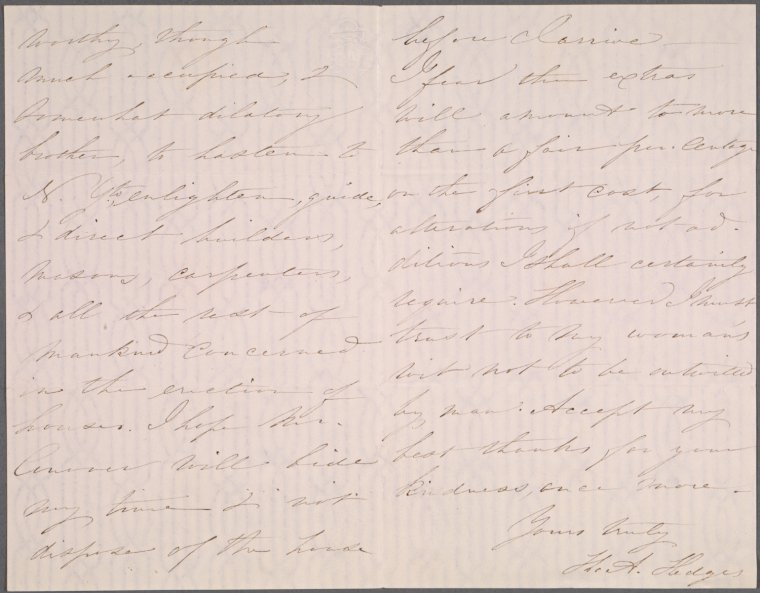 worthy, though
much occupied, &
somewhat dilatory
brother, to hasten to
N. Y. to, enlighten, guide,
& direct builders,
masons, carpenters,
& all the rest of
mankind concerned
in the erection of
houses. I hope Mr.
Conover will bide
my time & not
dispose of the house
before I arrive
I fear the extras
will amount to more
than a fair per. centage
on the first cost, for
alterations if not ad-
ditions I shall certainly
require. However I must
trust to my woman's
wit not to be outwitted
by man. Accept my
best thanks for your
kindness, once more -
Yours truly
A. Hedges